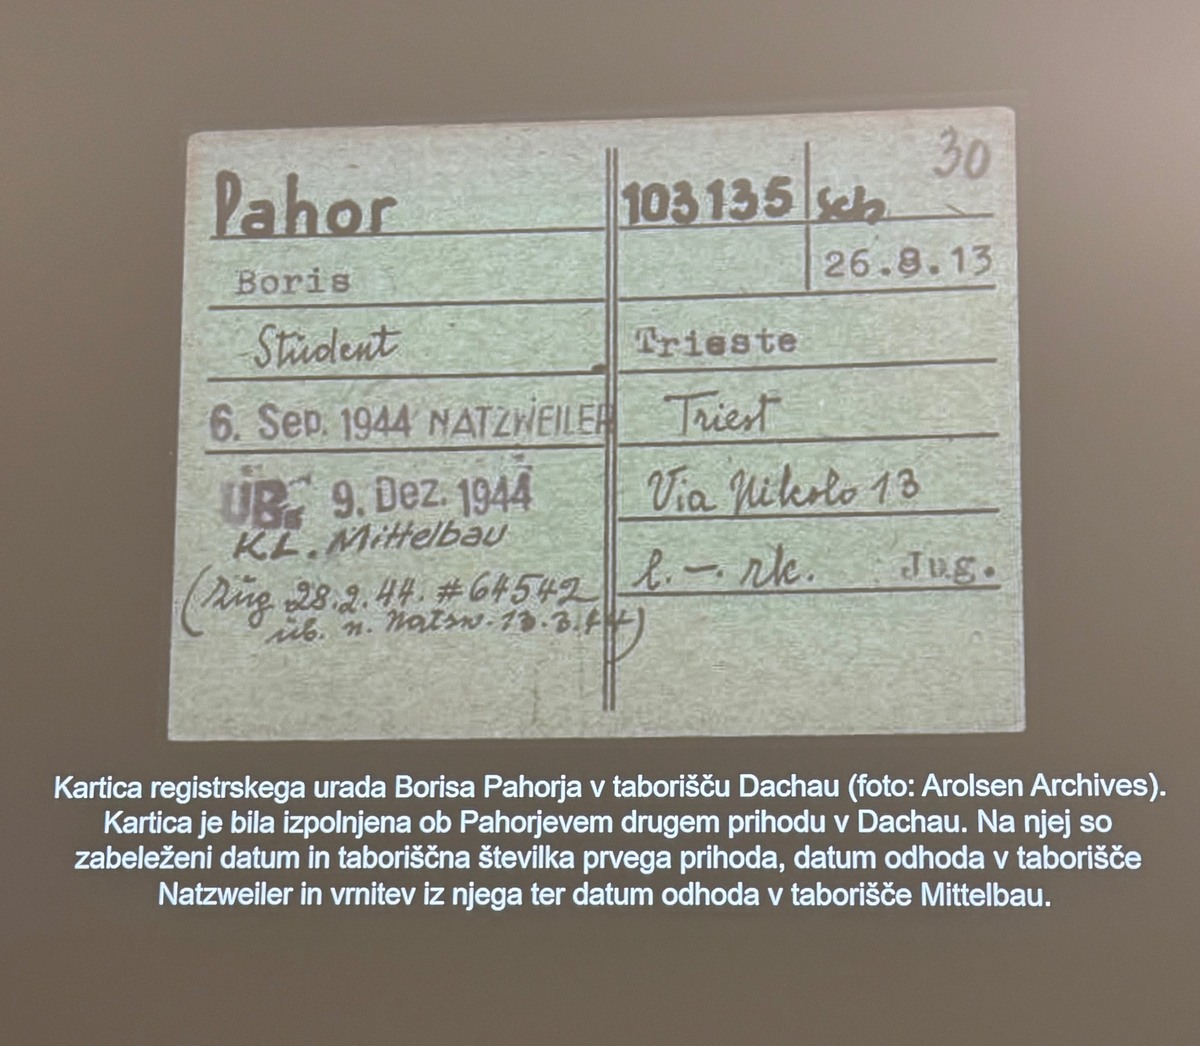 30
Pahor 103135 Sch
Boris 26.8.13
Student Trieste
6. Sep. 1944 NATZWEILER Triest
ÜB. 9. Dez. 1944 Via Nikolo 13
KL. Mittelbau
l. -. rk. Jug.
(Zug 28.2.44. #64542
üb. n. Natzw. 13.3.44)
Kartica registrskega urada Borisa Pahorja v taborišču Dachau (foto: Arolsen Archives).
Kartica je bila izpolnjena ob Pahorjevem drugem prihodu v Dachau. Na njej so
zabeleženi datum in taboriščna številka prvega prihoda, datum odhoda v taborišče
Natzweiler in vrnitev iz njega ter datum odhoda v taborišče Mittelbau.